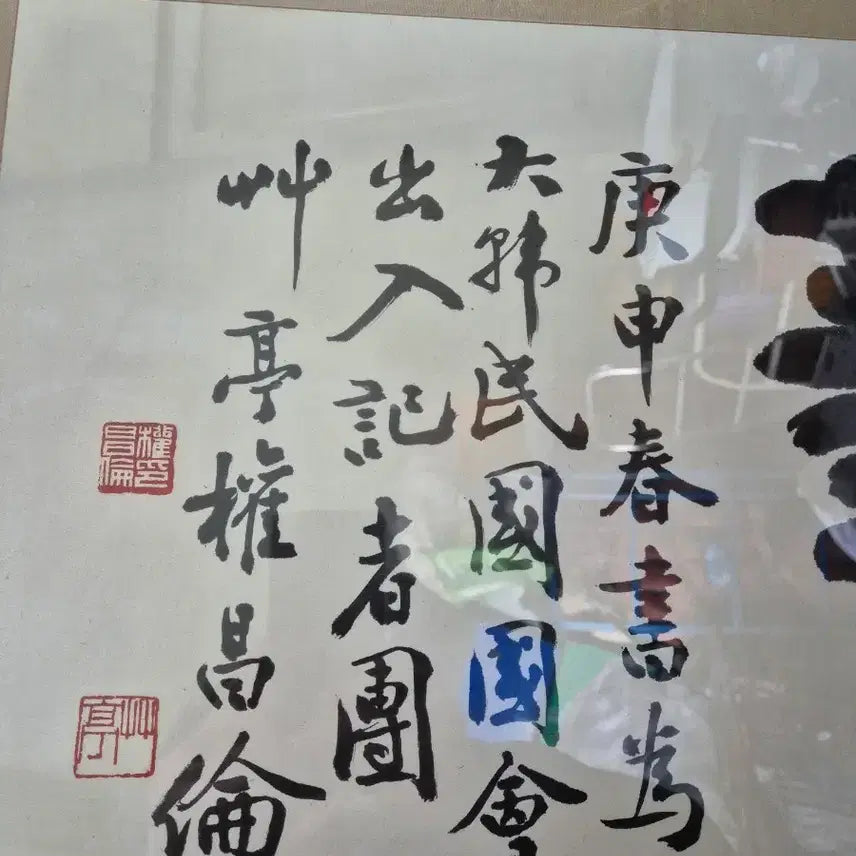 庚申春書為
大韓民國國會
出入記者團
艸亭權昌倫
權昌倫印
艸亭